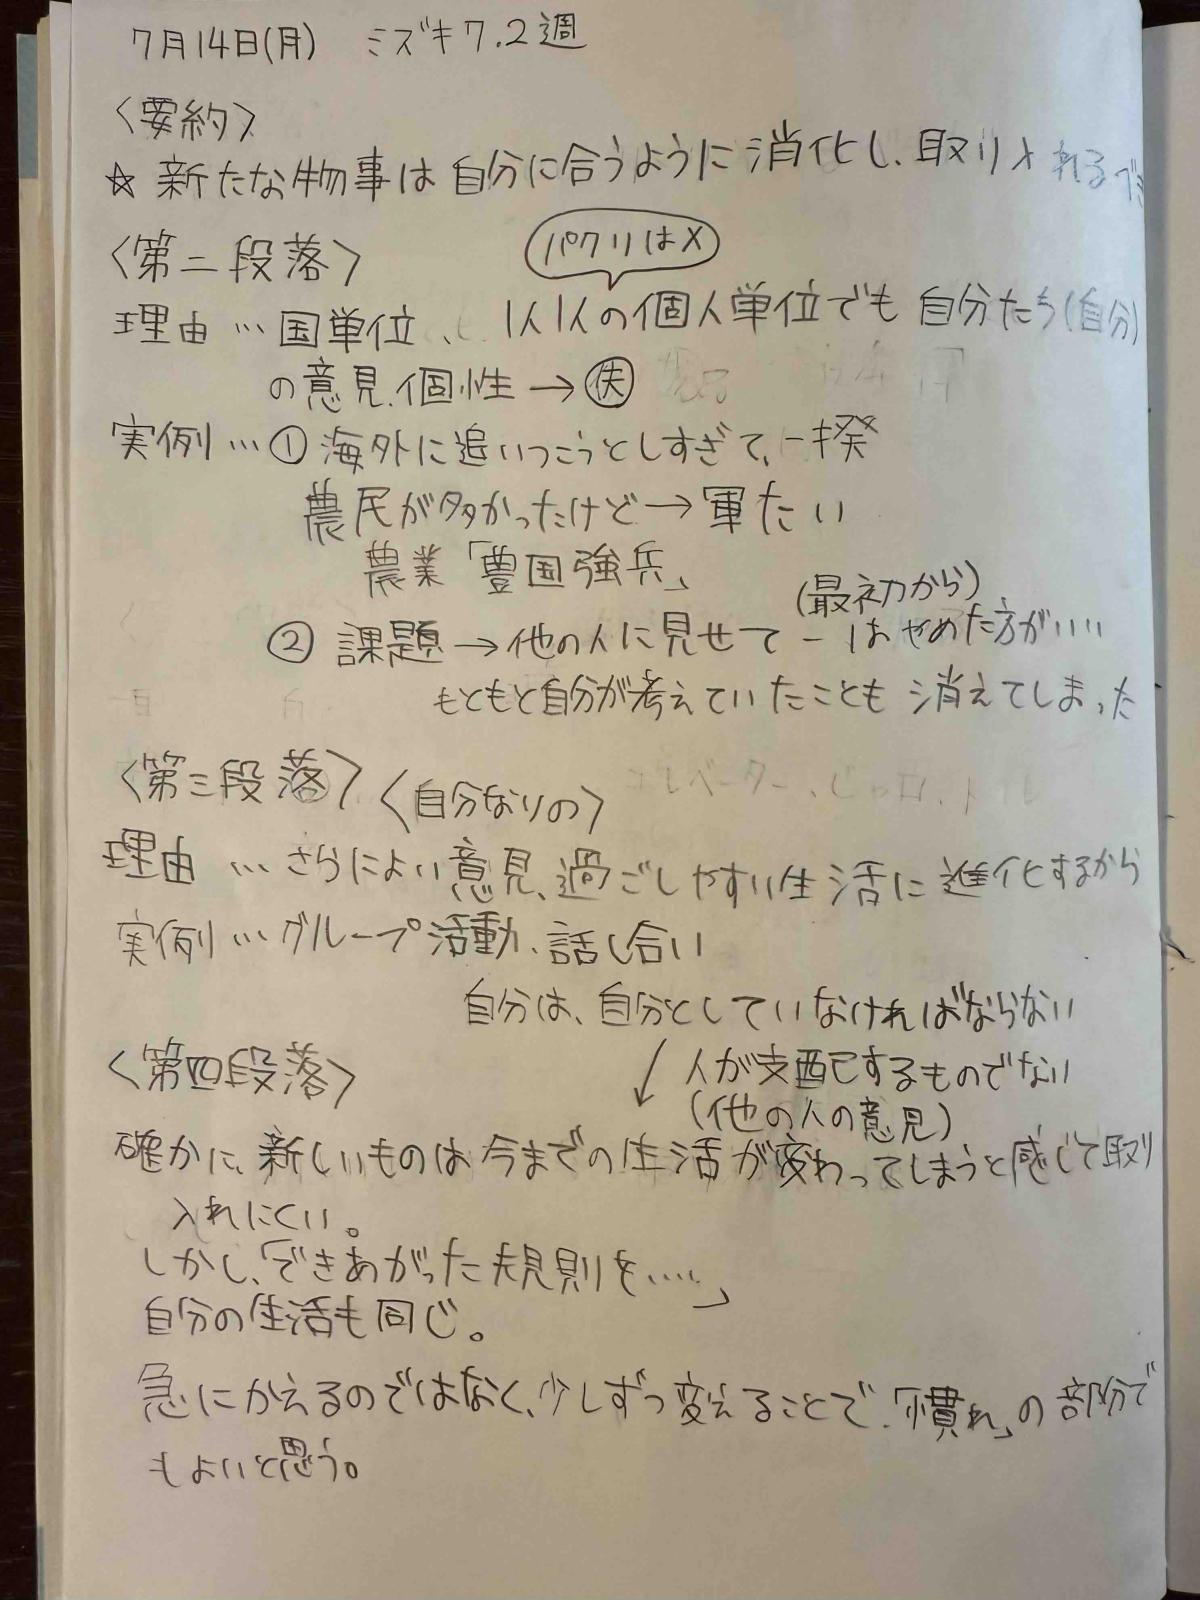 7月14日(月) ミズキ7.2週
〈要約〉
☆新たな物事は自分に合うように消化し、取り入れるべき
〈第二段落〉
パクリは×
理由…国単位、1人1人の個人単位でも自分たち(自分)
の意見、個性→㊛
実例…①海外に追いつこうとしすぎて、一揆
農民が多かったけど→軍たい
農業「豊国強兵」
(最初から)
②課題→他の人に見せて-はやめた方がいい
もともと自分が考えていたことも消えてしまった
〈第三段落〉〈自分なりの〉
理由…さらによい意見、過ごしやすい生活に進化するから
実例…グループ活動、話し合い
自分は、自分としていなければならない
人が支配するものでない
(他の人の意見)
〈第四段落〉
確かに、新しいものは今までの生活が変わってしまうと感じて取り
入れにくい。
しかし、「できあがった規則を……」
自分の生活も同じ。
急にかえるのではなく、少しずつ変えることで、「慣れ」の部分で
もよいと思う。